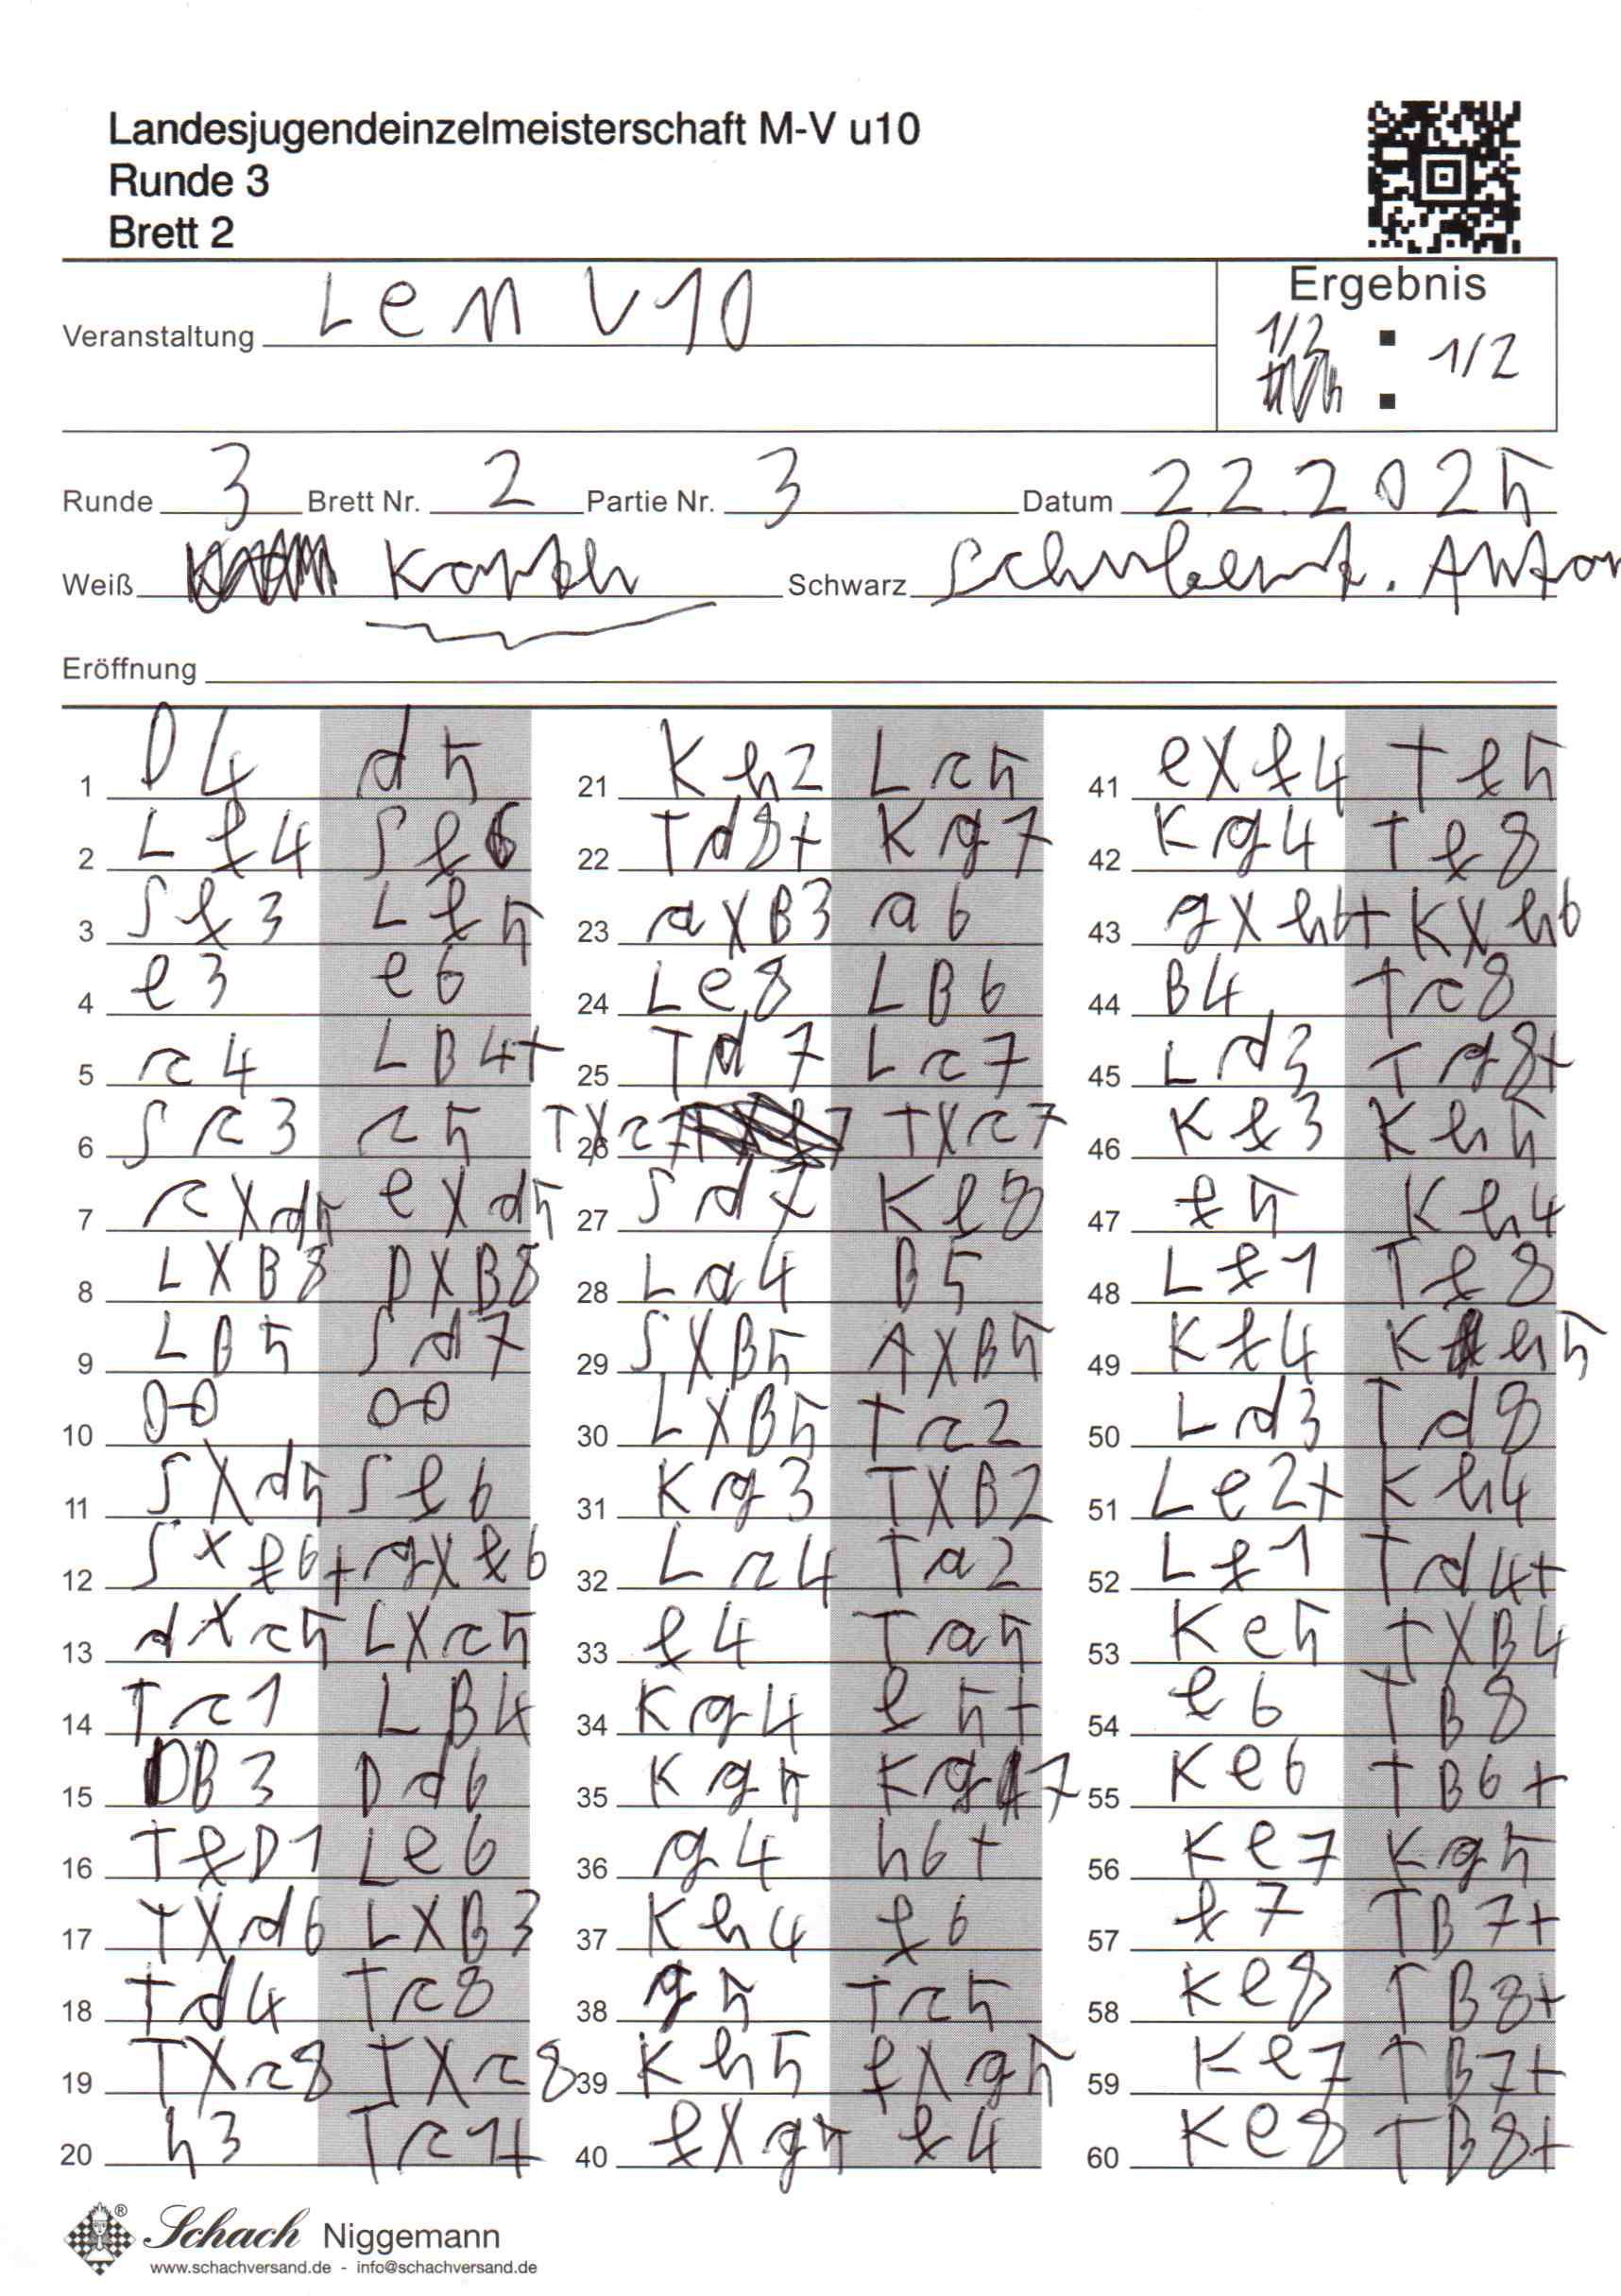 Landesjugendeinzelmeisterschaft M-V u10
Runde 3
Brett 2
Ergebnis
Veranstaltung Lem U10
1/2 : 1/2
Runde 3 Brett Nr. 2 Partie Nr. 3 Datum 22.2.2025
Weiß Schwarz Anton
Eröffnung
1 D4 d5 21 Kh2 Lc5 41 exf4 Tf5
2 Lf4 Sf6 22 Td8+ Kg7 42 Kg4 Tf8
3 Sf3 Lf5 23 axB3 a6 43 gxh6+ Kxh6
4 e3 e6 24 Le8 LB6 44 B4 Tc8
5 c4 LB4+ 25 Td7 Lc7 45 Ld3 Tg8+
6 Sc3 c5 26 TXc7 TXc7 46 Kf3 Kh5
7 cXd5 eXd5 27 Sd4 Kf8 47 f5 Kh4
8 LXB8 DXB8 28 La4 B5 48 Lf1 Tf8
9 LB5 Sd7 29 SXB5 AXB5 49 Kf4 Kh5
10 0-0 0-0 30 LXB5 Tc2 50 Ld3 Td8
11 SXd5 Sf6 31 Kg3 TXB2 51 Le2+ Kh4
12 Sxf6+ gXf6 32 Lc4 Ta2 52 Lf1 Td4+
13 dXc5 LXc5 33 f4 Ta5 53 Ke5 TXB4
14 Tc1 LB4 34 Kg4 f5+ 54 f6 TB8
15 DB3 Dd6 35 Kg5 Kg7 55 Ke6 TB6+
16 TfD1 Le6 36 g4 h6+ 56 Ke7 Kg5
17 TXd6 LXB3 37 Kh4 f6 57 f7 TB7+
18 Td4 Tc8 38 g5 Tc5 58 Ke8 TB8+
19 TXc8 TXc8 39 Kh5 fXg5 59 Ke7 TB7+
20 h3 Tc1+ 40 fXg5 f4 60 Ke8 TB8+
Schach Niggemann
www.schachversand.de - info@schachversand.de